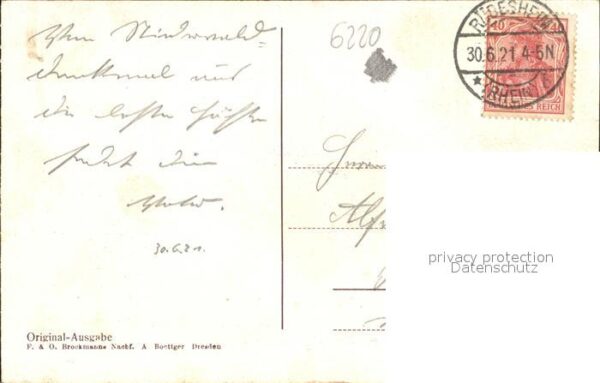 Vom Niederwald-
denkmal aus
die besten Grüße
sendet Dir
30.6.21.
6220
RÜDESHEIM
30.6.21 4-5N
* (RHEIN)
DEUTSCHES REICH
Herrn
Alf
privacy protection
Datenschutz
Original-Ausgabe
F. & O. Brockmanns Nachf. A Boettger Dresden